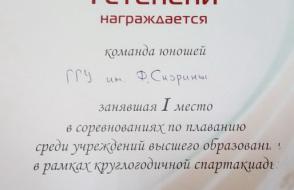 СТЕПЕНИ
награждается
команда юношей
ГГУ им. Ф. Скорины
занявшая I место
в соревнованиях по плаванию
среди учреждений высшего образован
в рамках круглогодичной спартакиад